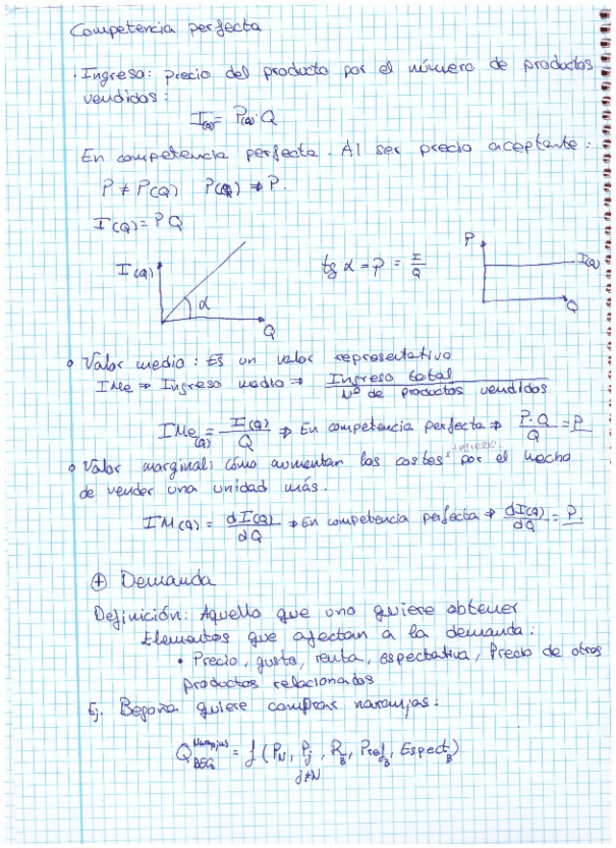 Competencia perfecta
· Ingreso: precio del producto por el número de productos
vendidos:
I(Q) = P(Q)·Q
En competencia perfecta. Al ser precio aceptante:
P ≠ P(Q) P(Q) ⇒ P.
I(Q) = P Q
I(Q) α Q tg α = P = I/Q P I(Q) Q
• Valor medio: Es un valor representativo
IMe ⇒ Ingreso medio ⇒ Ingreso total / Nº de productos vendidos
IMe(Q) = I(Q)/Q ⇒ En competencia perfecta ⇒ P·Q/Q = P
• Valor marginal: cómo aumentan los costes por el hecho
de vender una unidad más.
IM(Q) = dI(Q)/dQ ⇒ En competencia perfecta ⇒ dI(Q)/dQ = P.
⊕ Demanda
Definición: Aquello que uno quiere obtener
Elementos que afectan a la demanda:
• Precio, gusto, renta, espectativa, Precio de otros
productos relacionados
Ej. Begoña quiere comprar naranjas:
Q Naranjas BEG = f (P_N, P_j, R_B, Pref_B, Espect_B)
j≠N